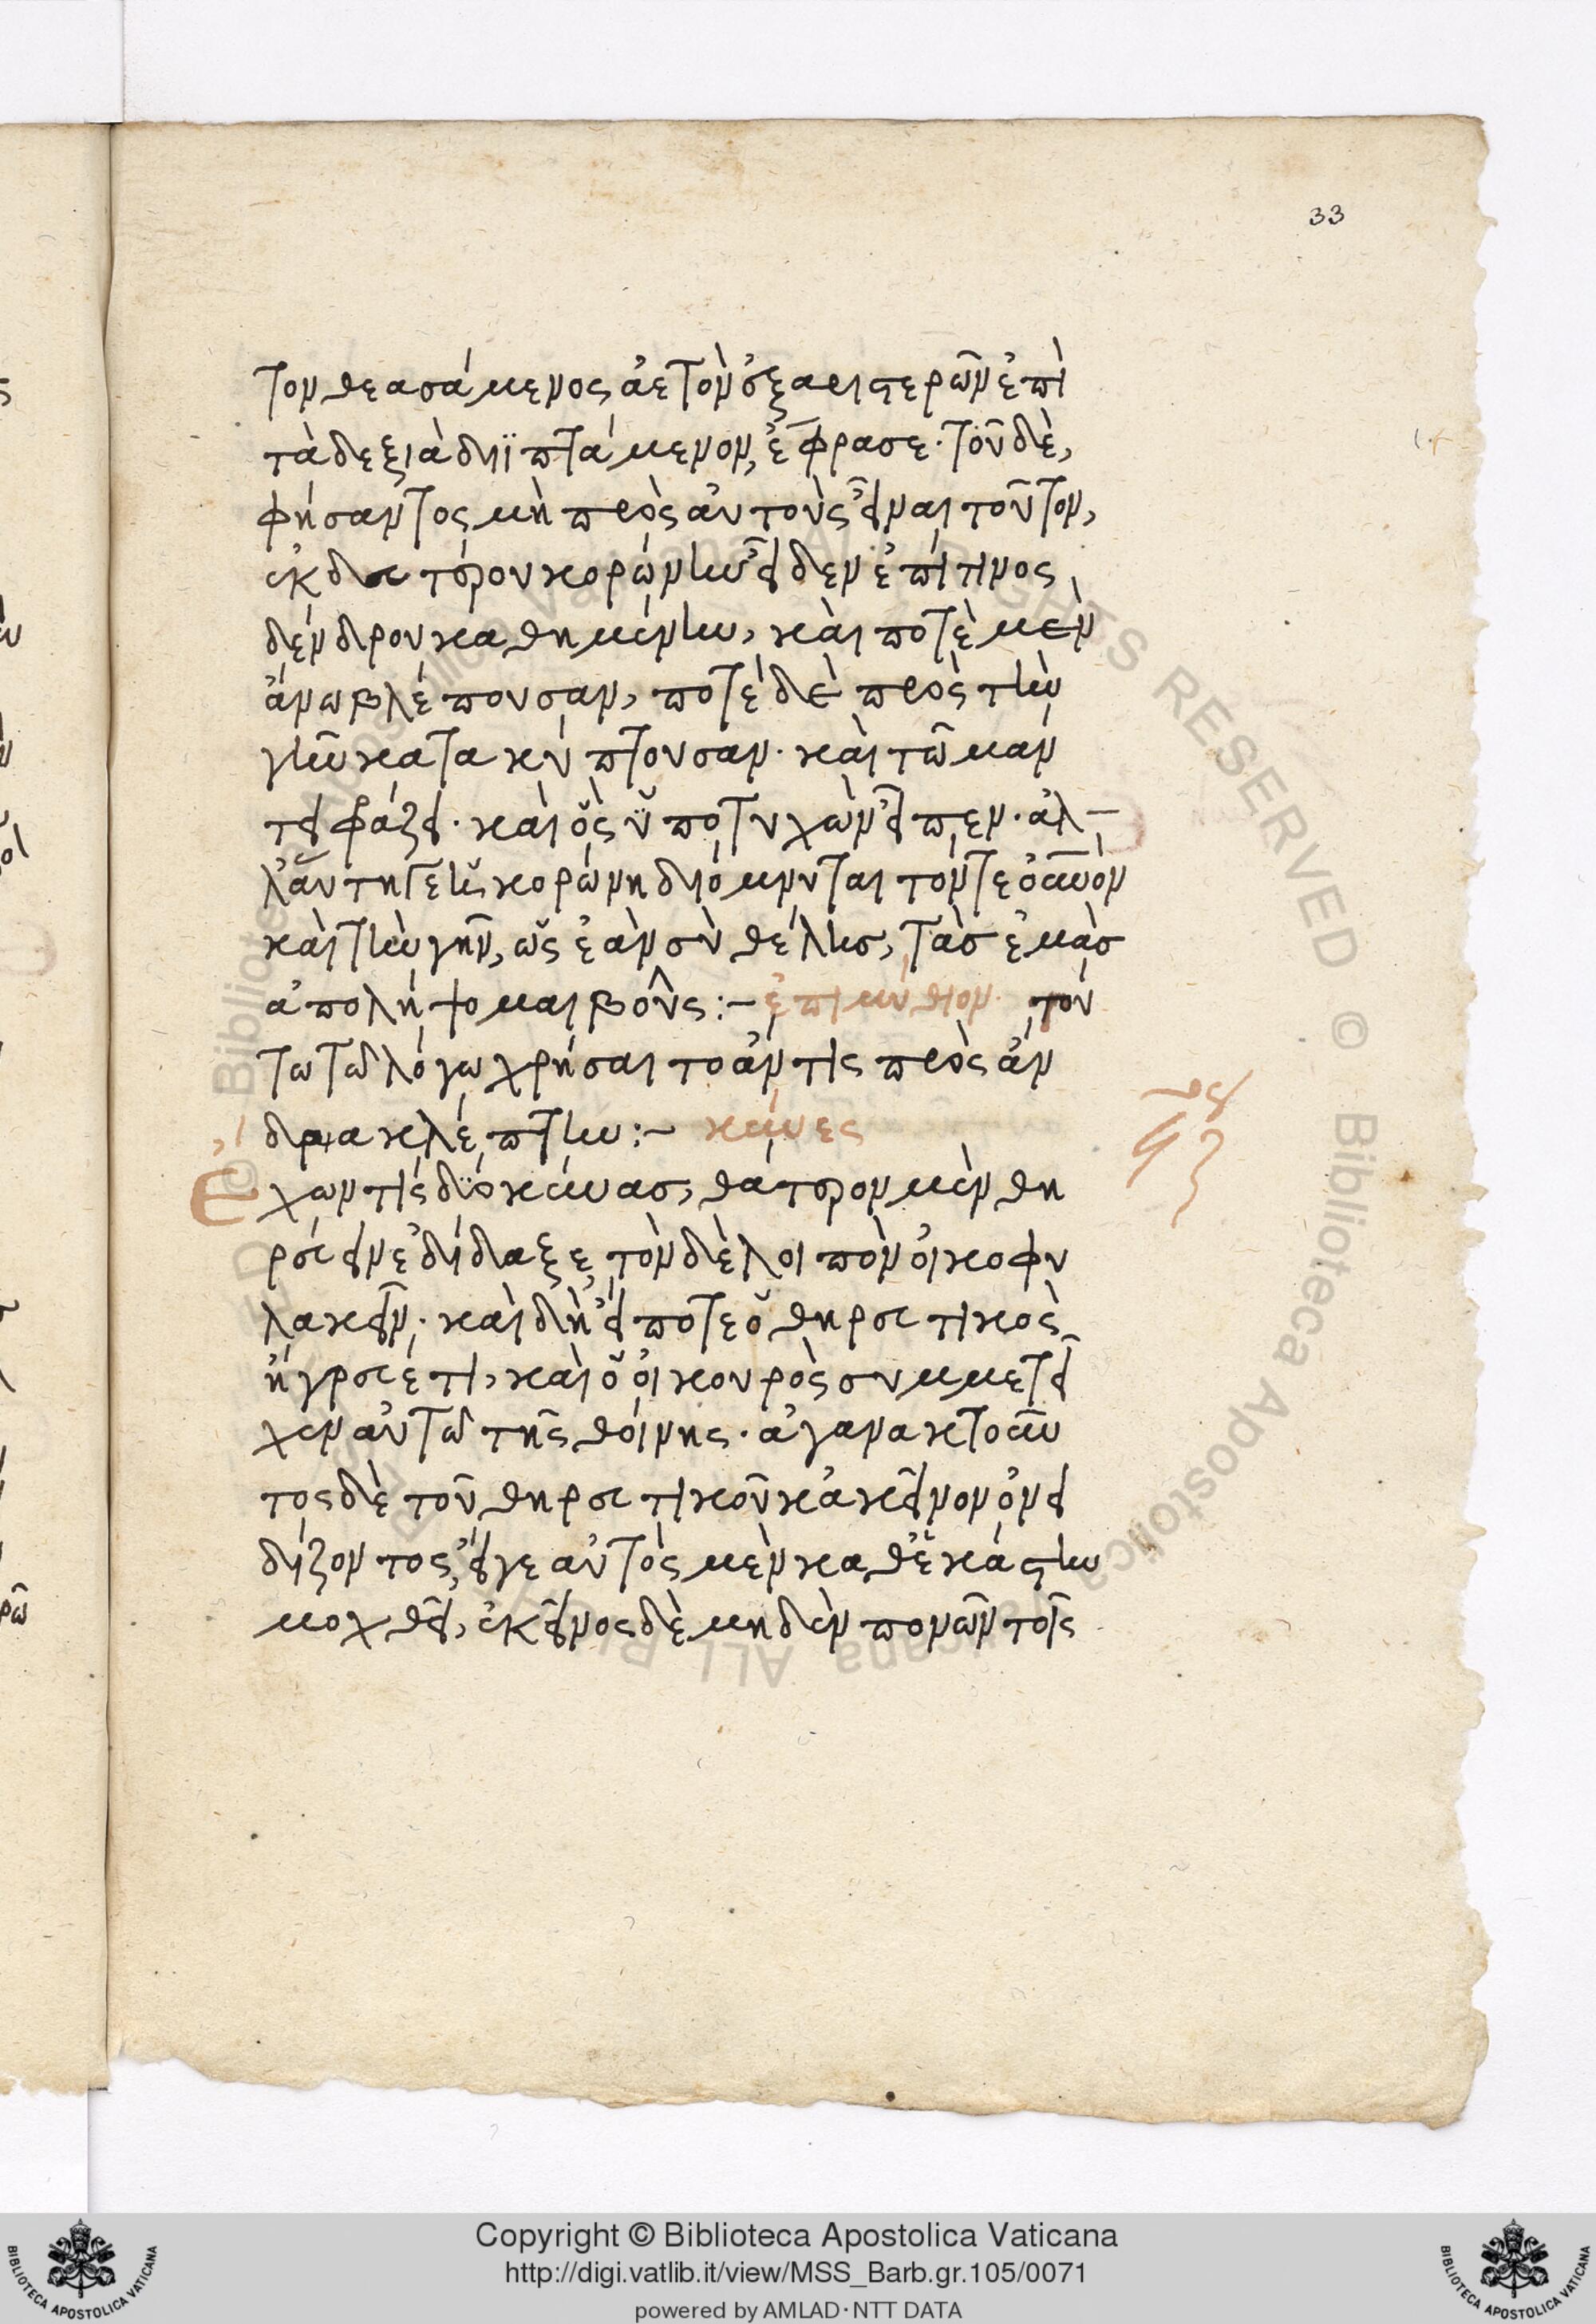 33
τον θεασάμενος ἀετὸν ἐξ αριστερῶν ἐπὶ
τὰ δεξιὰ διϊπτάμενον, ἔφρασε· τοῦ δὲ,
φήσαντος μὴ πρὸς αὐτοὺς εἶναι τοῦτον,
ἐκ δευτέρου κορώνην εἶδεν ἐπί τινος
δένδρου καθημένην, καὶ ποτὲ μὲν
ἄνω βλέπουσαν, ποτὲ δὲ πρὸς τὴν
γῆν κατακύπτουσαν· καὶ τῶ μάν
τει φάζει· καὶ ὃς ὑποτυχὼν εἶπεν· ἀλ-
λ' αὕτη γε ἡ κορώνη διόμνυται τόν τε οὐανὸν
καὶ τὴν γῆν, ὡς ἐὰν σὺ θέλης, τὰσ ἐμὰσ
ἀπολήψομαι βοῦς :- ἐπιμύθιον. τού
τω τῶ λόγω χρήσαιτο ἄν τις πρὸς ἄν
δρα κλέπτην :- κύνες
Ἔχων τίς δύο κύνασ, θάτερον μὲν θη
ρεύειν ἐδίδαξε τὸν δὲ λοιπὸν οἰκοφυ
λακεῖν· καὶ δὴ εἴ ποτε ὁ θηρευτικὸς
ἤγρευέ τι, καὶ ὁ οἰκουρὸς συμμετεῖ
χεν αὐτῶ τῆς θοίνης· ἀγανακτοῦν
τος δὲ τοῦ θηρευτικοῦ κἀκεῖνον ὀνει
δίζοντος, εἴγε αὐτὸς μὲν καθ' ἑκάστην
μοχθεῖ, ἐκεῖνος δὲ μηδὲν πονῶν τοῖς
Copyright © Biblioteca Apostolica Vaticana
http://digi.vatlib.it/view/MSS_Barb.gr.105/0071
powered by AMLAD·NTT DATA